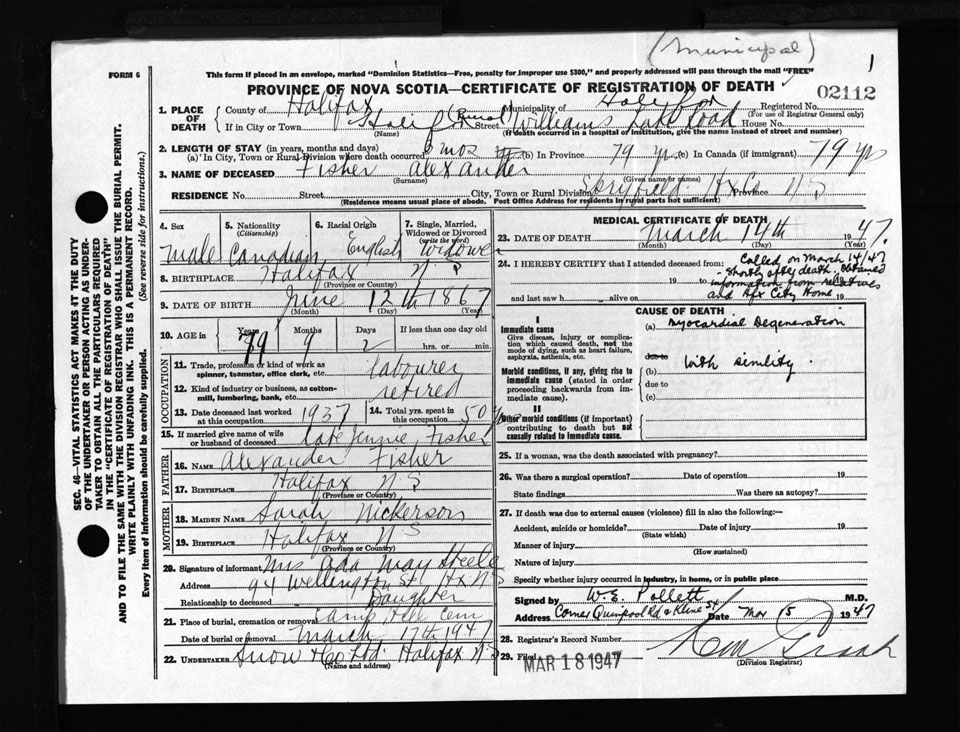 (Municipal)
1
FORM 6
This form if placed in an envelope, marked "Dominion Statistics—Free, penalty for improper use $300," and properly addressed will pass through the mail "FREE"
PROVINCE OF NOVA SCOTIA—CERTIFICATE OF REGISTRATION OF DEATH
02112
1. PLACE OF DEATH County of Halifax Municipality of Halifax Registered No.
(For use of Registrar General only)
If in City or Town Halifax (Rural) Street Williams Lake Road House No.
(Name) (If death occurred in a hospital of institution, give the name instead of street and number)
2. LENGTH OF STAY (in years, months and days)
(a) In City, Town or Rural Division where death occurred mos (b) In Province 79 yrs (c) In Canada (if immigrant) 79 yrs
3. NAME OF DECEASED Fisher Alexander
(Surname) (Given name or names)
RESIDENCE No. Street City, Town or Rural Division Spryfield Hx Co Province N S
(Residence means usual place of abode. Post Office Address for residents in rural parts not sufficient)
4. Sex 5. Nationality (Citizenship) 6. Racial Origin 7. Single, Married, Widowed or Divorced (write the word)
Male Canadian English Widower
8. BIRTHPLACE Halifax N. S
(Province or Country)
9. DATE OF BIRTH June 12th 1867
(Month) (Day) (Year)
10. AGE in Years Months Days If less than one day old
79 9 2 hrs. or min.
OCCUPATION
11. Trade, profession or kind of work as spinner, teamster, office clerk, etc. labourer
12. Kind of industry or business, as cotton-mill, lumbering, bank, etc. retired
13. Date deceased last worked at this occupation 1937 14. Total yrs. spent in this occupation 50 y
15. If married give name of wife or husband of deceased Late Jennie Fisher
FATHER
16. NAME Alexander Fisher
17. BIRTHPLACE Halifax N S
(Province or Country)
MOTHER
18. MAIDEN NAME Sarah Nickerson
19. BIRTHPLACE Halifax N S
(Province or Country)
20. Signature of informant Mrs Ada May Steele
Address 94 Wellington St Hx N S
Relationship to deceased Daughter
21. Place of burial, cremation or removal Camp Hill Cem
Date of burial or removal March 17th 1947
22. UNDERTAKER Snow & Co Ltd Halifax N S
(Name and address)
MEDICAL CERTIFICATE OF DEATH
23. DATE OF DEATH March 14th 1947.
(Month) (Day) (Year)
24. I HEREBY CERTIFY that I attended deceased from: Called on March 14/47
- shortly after death. Obtained
19 to information from relatives 19
and last saw h alive on and Hfx City Home 19
CAUSE OF DEATH
I
Immediate cause
Give disease, injury or complication which caused death, not the mode of dying, such as heart failure, asphyxia, asthenia, etc.
(a) Myocardial Degeneration
due to with senility.
Morbid conditions, if any, giving rise to immediate cause (stated in order proceeding backwards from immediate cause).
(b)
due to
(c)
II
Other morbid conditions (if important) contributing to death but not causally related to immediate cause.
25. If a woman, was the death associated with pregnancy?
26. Was there a surgical operation? Date of operation 19
State findings Was there an autopsy?
27. If death was due to external causes (violence) fill in also the following:—
Accident, suicide or homicide? Date of injury 19
(State which)
Manner of injury
(How sustained)
Nature of injury
Specify whether injury occurred in industry, in home, or in public place
Signed by W. E. Pollett M.D.
Address Corner Quinpool Rd & Kline St Date Mar 15 1947
28. Registrar's Record Number
29. Filed MAR 18 1947
(Division Registrar)
SEC. 46—VITAL STATISTICS ACT MAKES IT THE DUTY
OF THE UNDERTAKER OR PERSON ACTING AS UNDER-
TAKER TO OBTAIN ALL THE PARTICULARS REQUIRED
IN THE "CERTIFICATE OF REGISTRATION OF DEATH"
AND TO FILE THE SAME WITH THE DIVISION REGISTRAR WHO SHALL ISSUE THE BURIAL PERMIT.
WRITE PLAINLY WITH UNFADING INK. THIS IS A PERMANENT RECORD.
Every item of information should be carefully supplied. (See reverse side for instructions.)